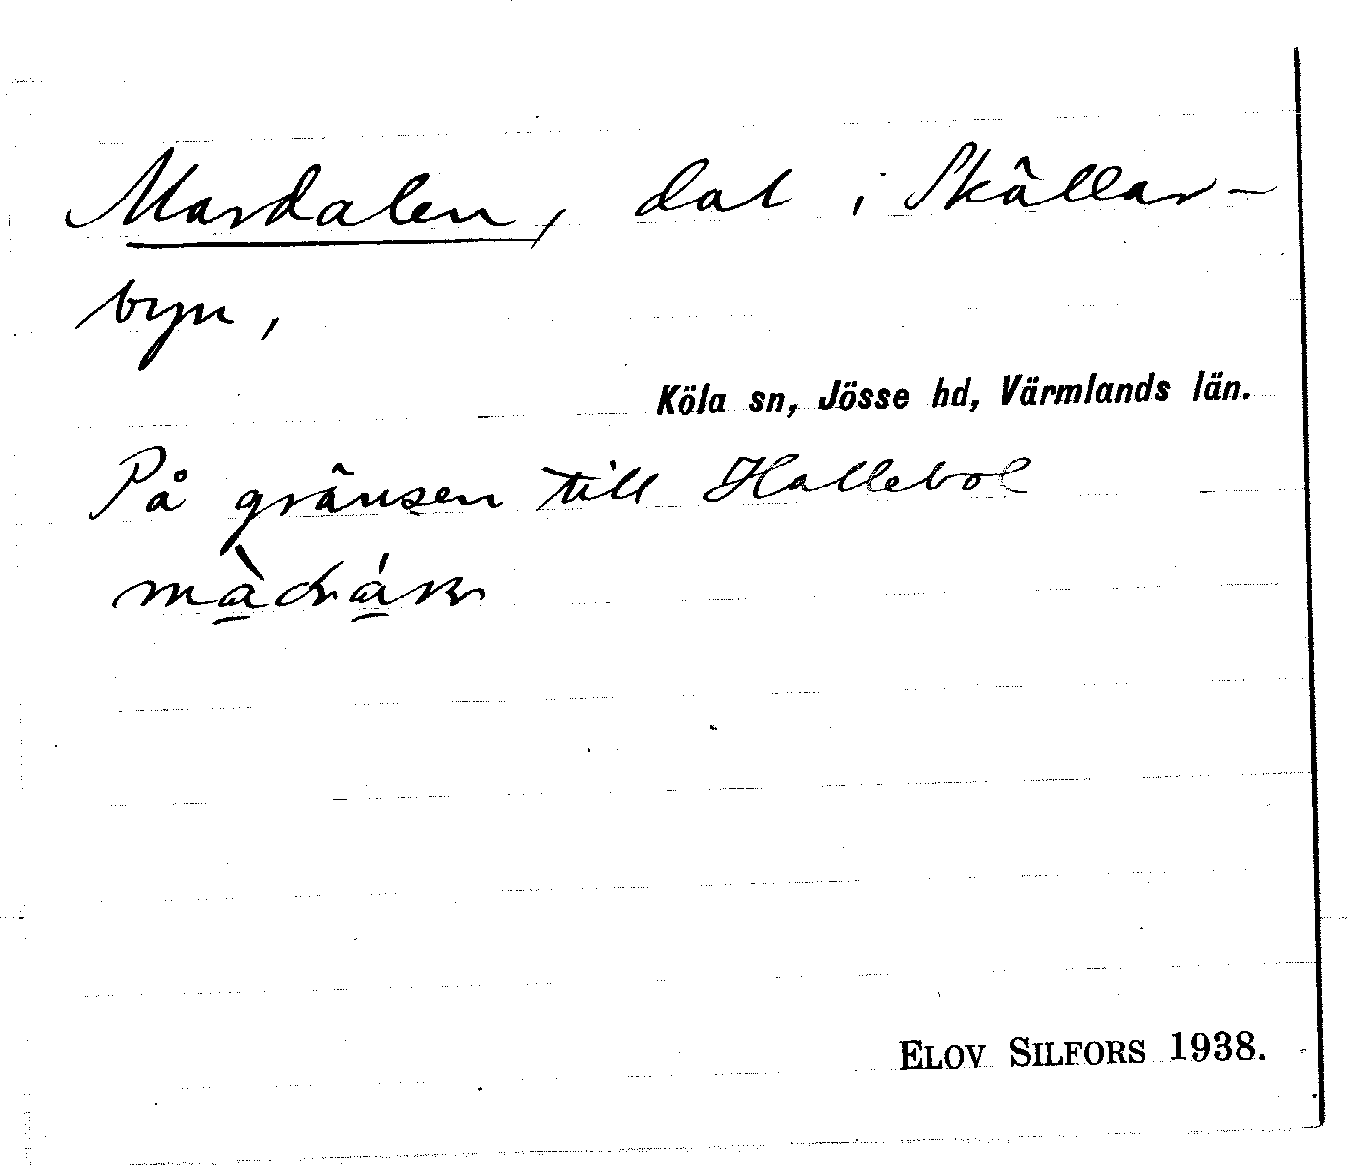 Mardalen, dal i Skällar-
byn,
Köla sn, Jösse hd, Värmlands län.
På gränsen till Hallebol
ELOV SILFORS 1938.